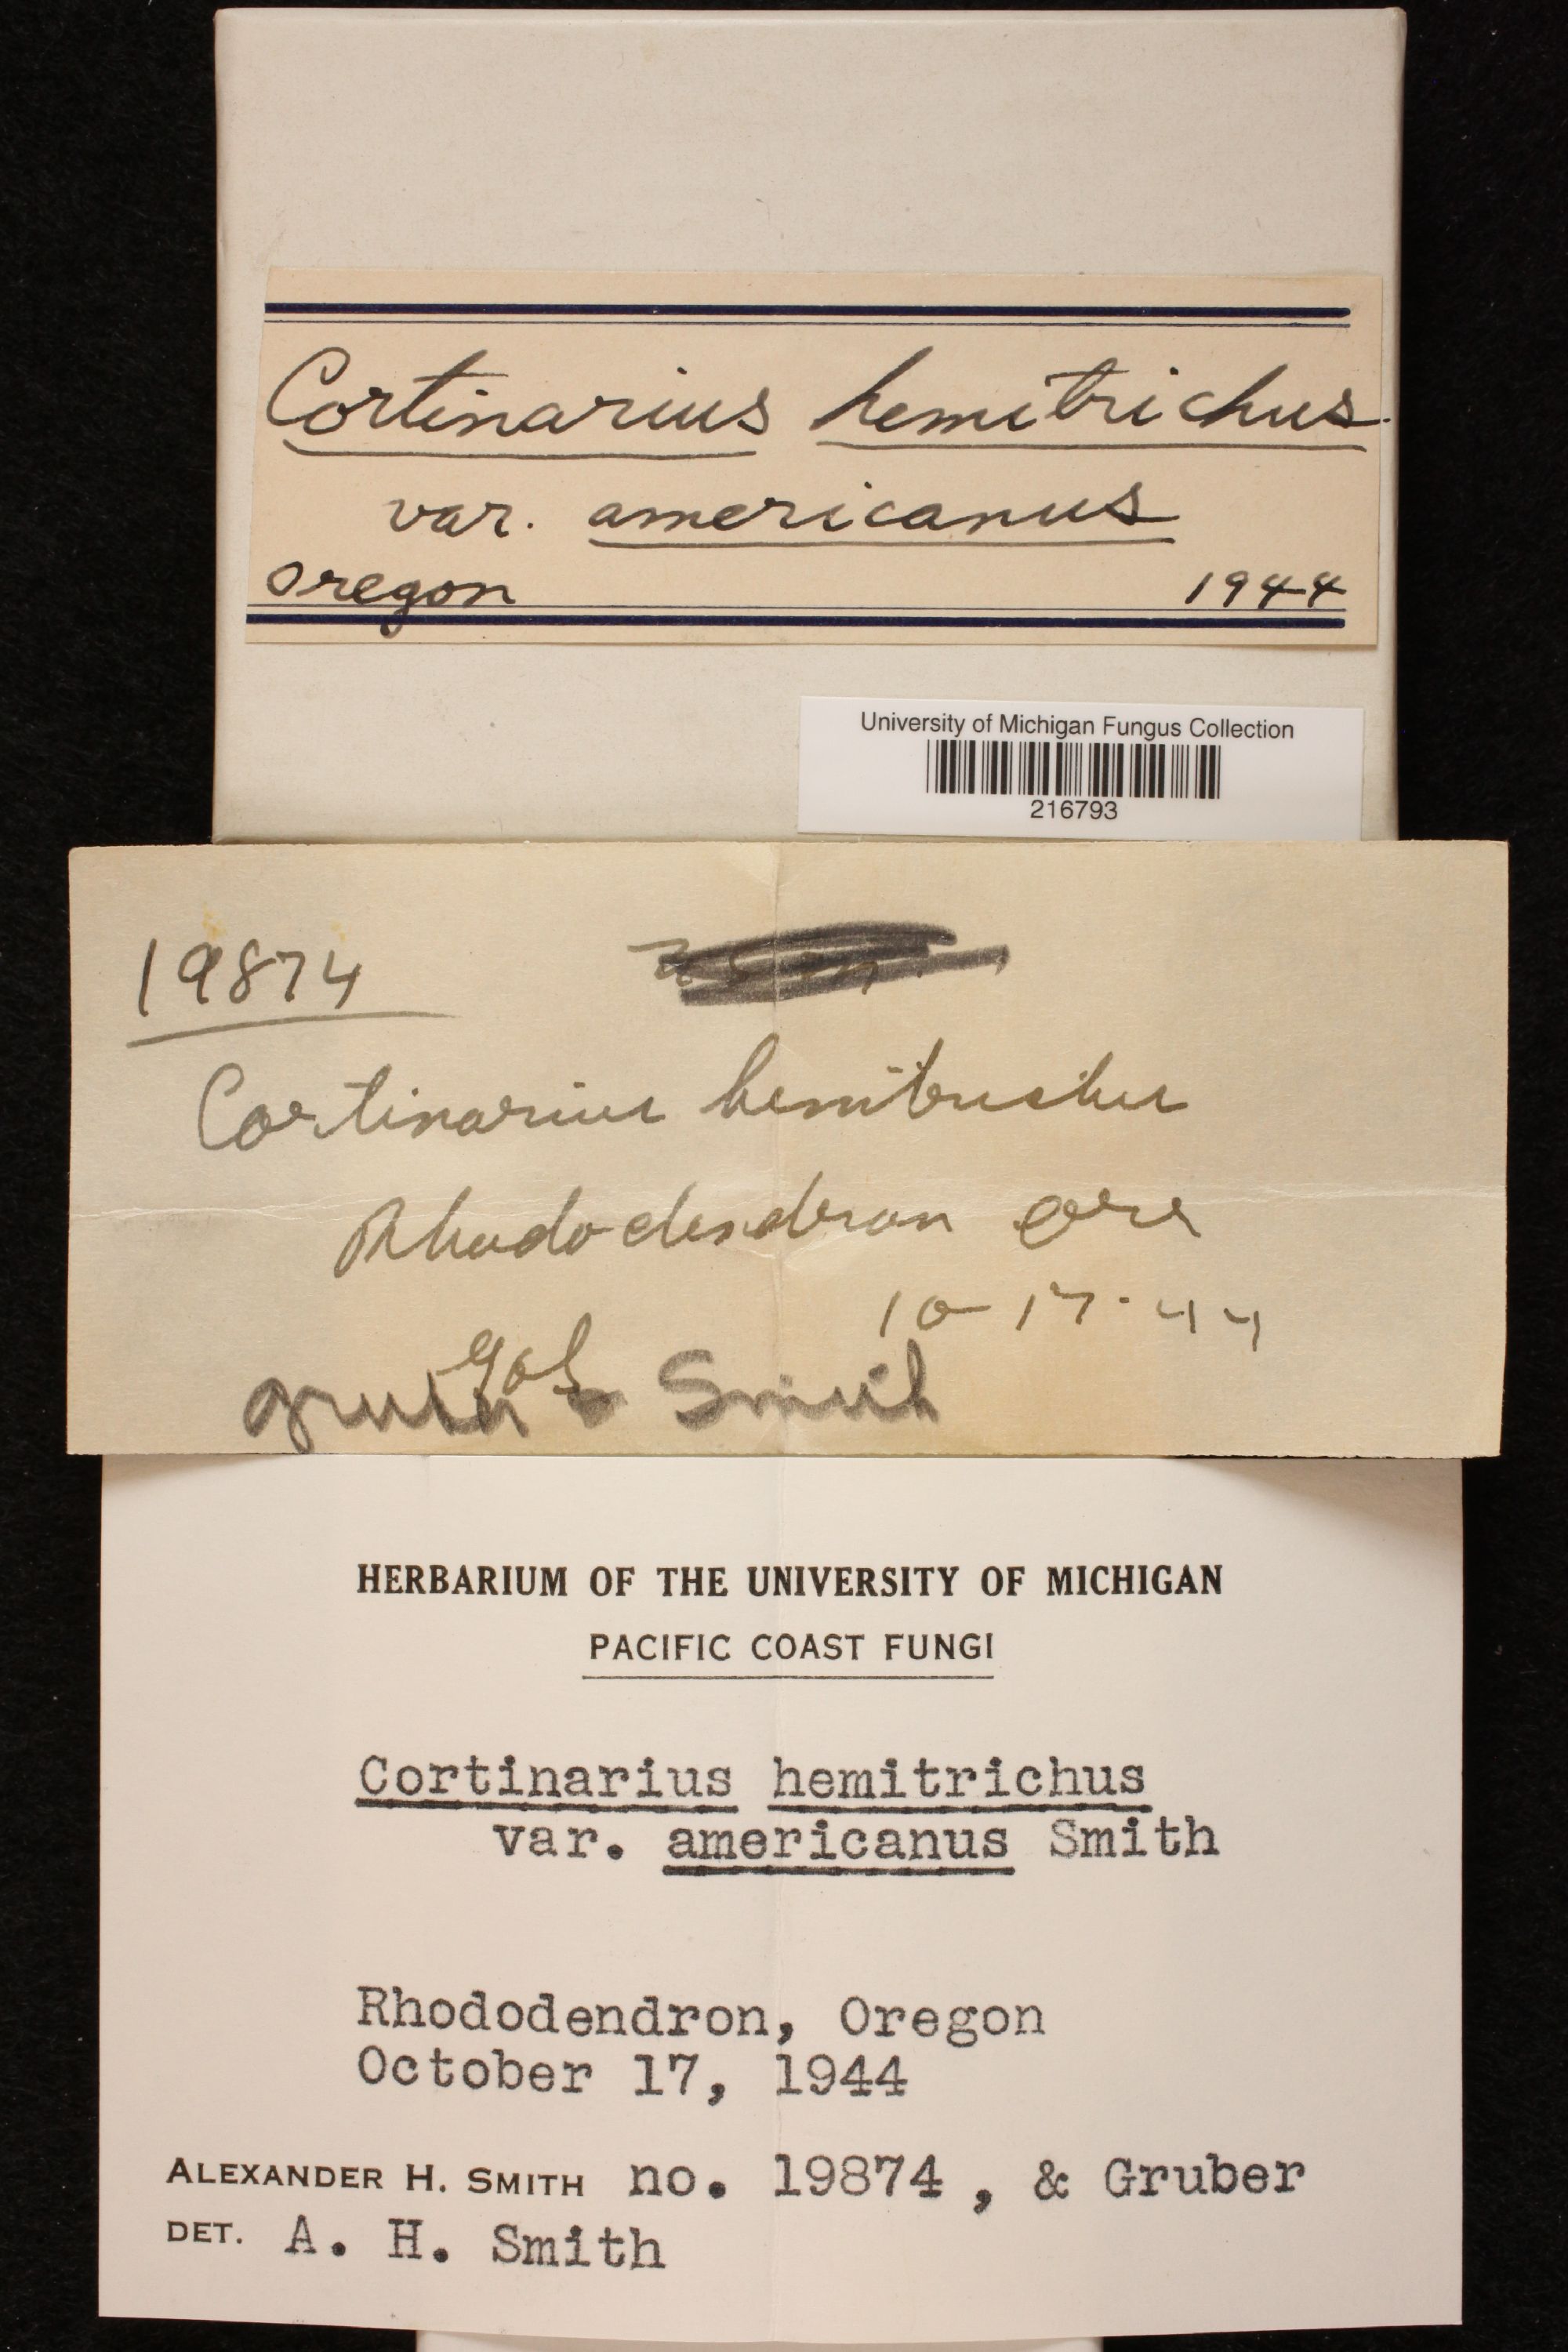 Cortinarius hemitrichus
var. americanus
Oregon 1944
University of Michigan Fungus Collection
216793
19874
Cortinarius hemitrichus
Rhododendron Ore
10-17-44
Gruber & Smith
HERBARIUM OF THE UNIVERSITY OF MICHIGAN
PACIFIC COAST FUNGI
Cortinarius hemitrichus
var. americanus Smith
Rhododendron, Oregon
October 17, 1944
ALEXANDER H. SMITH no. 19874, & Gruber
DET. A. H. Smith